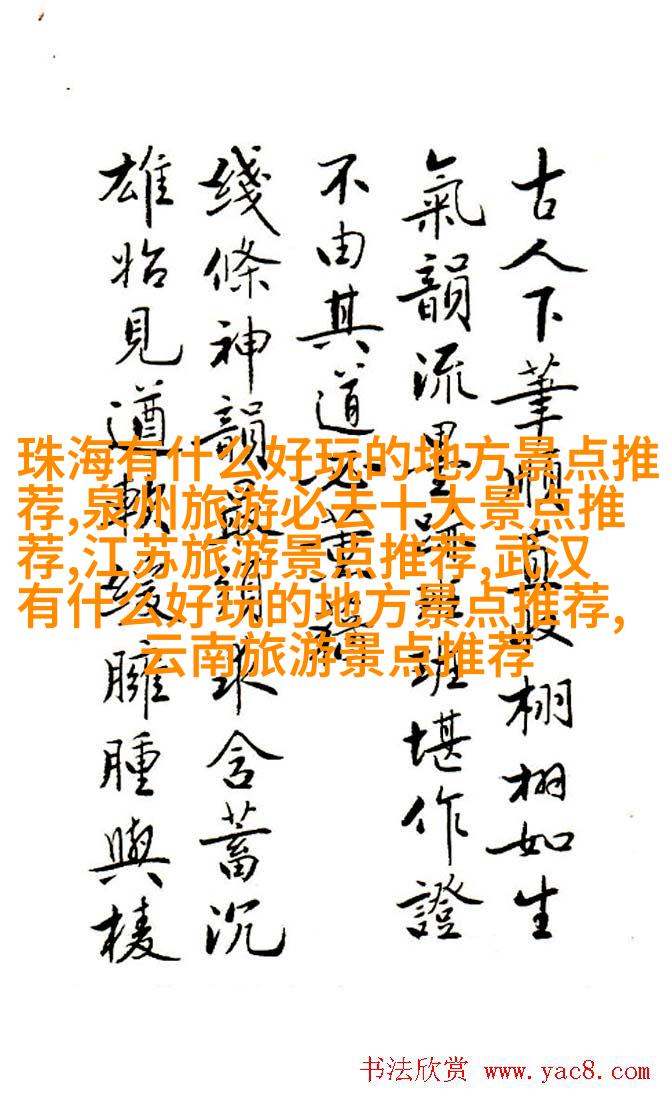 古人下筆栩栩如生
氣韻流墨跡斑斑堪作證
不由其道
綫條神韻最求含蓄沉
雄始見遒軟緩臃腫與棱
珠海有什么好玩的地方景点推
荐,泉州旅游必去十大景点推
荐,江苏旅游景点推荐,武汉
有什么好玩的地方景点推荐,
云南旅游景点推荐
书法欣赏 www.yac8.com